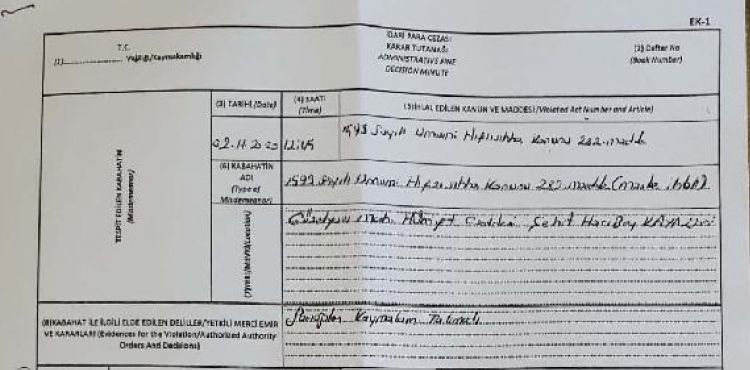 EK-1
T.C.
(1) Valiliği/Kaymakamlığı
İDARİ PARA CEZASI
KARAR TUTANAĞI
ADMINISTRATIVE FINE
DECISION MINUTE
(2) Defter No
(Book Number)
TESPİT EDİLEN KABAHATİN
(Misdemeanor)
(3) TARİHİ (Date)
(4) SAATİ
(Time)
(5) İHLAL EDİLEN KANUN VE MADDESİ/Violated Act Number and Article)
12:45
Sayılı Umumi Hıfzıssıhha Kanunu 282. madde
(6) KABAHATİN
ADI
(Type of
Misdemeanor)
1593 Sayılı Umumi Hıfzıssıhha Kanunu 282. madde (maske
(7) YERİ/MEVKİİ/Location)
Hürriyet Caddesi Şehit
(8) KABAHAT İLE İLGİLİ ELDE EDİLEN DELİLLER/YETKİLİ MERCİ EMİR
VE KARARLARI (Evidences for the Violation/Authorized Authority
Orders And Decisions)
Kaymakam